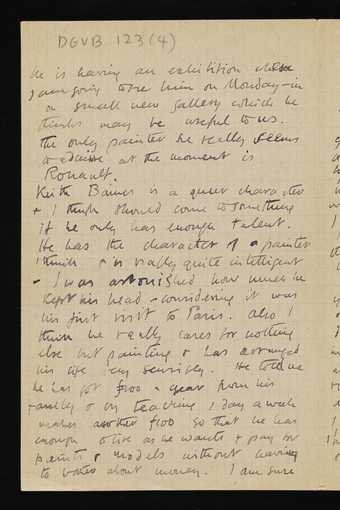 DGVB 123(4)
he is having an exhibition where
I am going to see him on Monday – in
a small new gallery which he
thinks may be useful to us.
The only painter he really seems
to admire at the moment is
Rouault.
Keith Baines is a queer character
+ I think should come to something
if he only has enough talent.
He has the character of a painter
I think + is really quite intelligent
– I was astonished how much he
kept his head – considering it was
his first visit to Paris. Also I
think he really cares for nothing
else but painting + has arranged
his life very sensibly. He told me
he has got £100 a year from his
family + on teaching 1 day a week
makes another £100 so that he has
enough to live as he wants + pay for
paints + models without having
to bother about money. I am sure